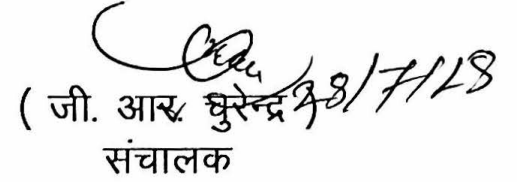 ( जी. आर. चुरेन्द्र ) 28/7/18
संचालक